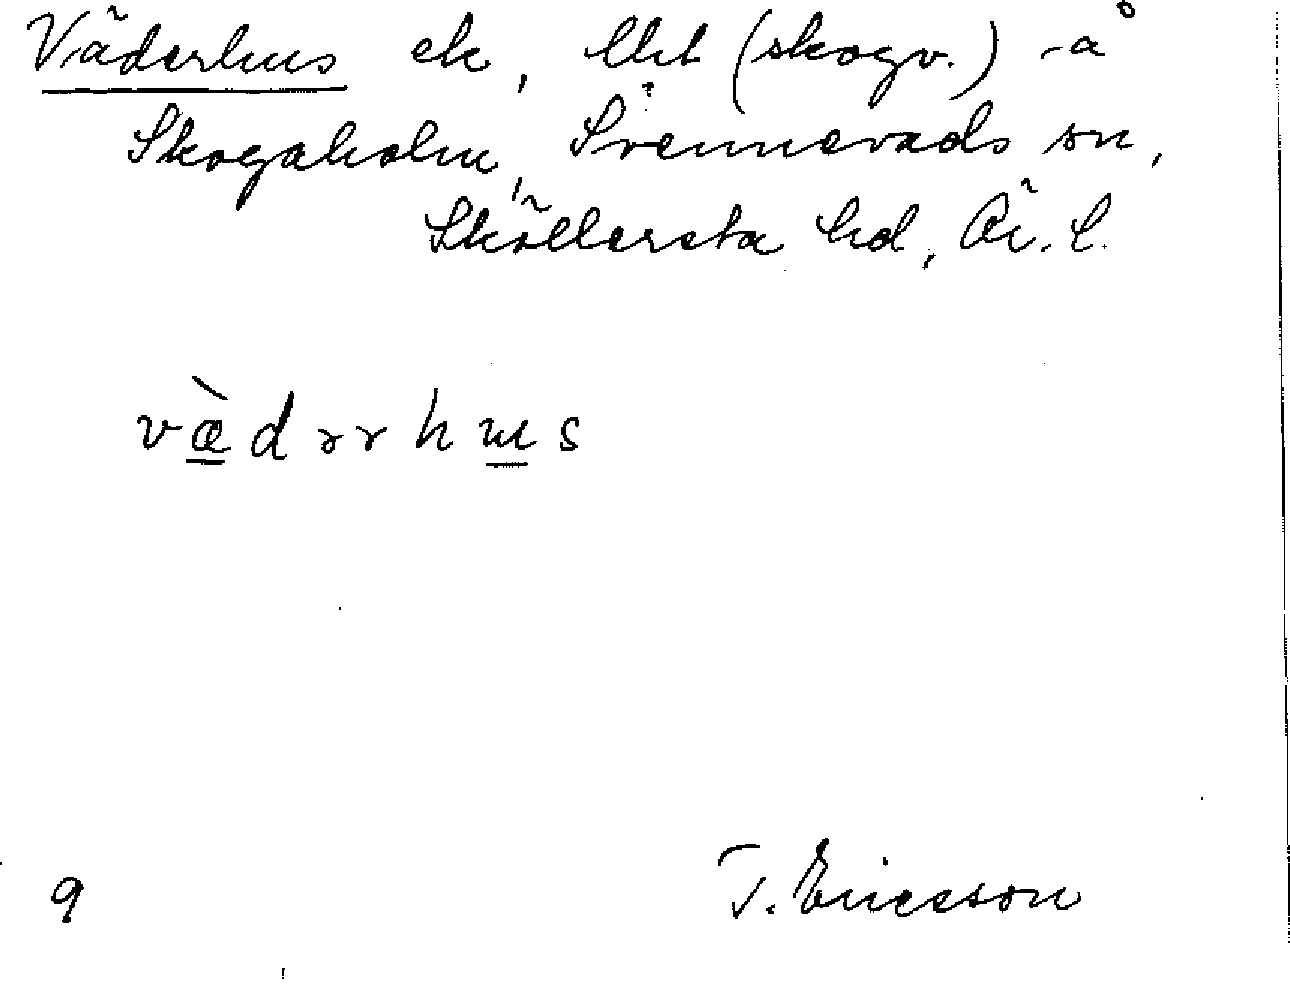 Väderhus ek, lht (skogv.) -å
Skogaholm, Svennevads sn,
Sköllersta hd, Ör. l.
v æ̀ d ə r h ɯ s
9
T. Ericsson